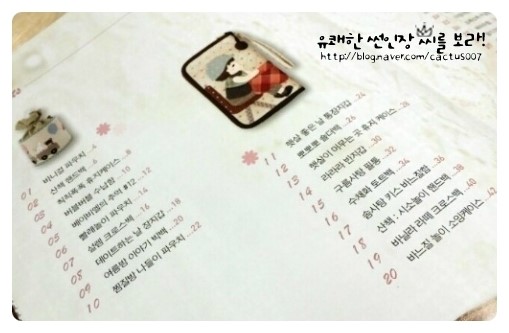 유쾌한 썬인장 씨를 보라!
http://blog.naver.com/cactus007
01 바니걸 파우치 ..4
02 산책 핸드백 ..6
03 칙칙폭폭 휴지케이스 ..8
04 버블버블 수납함 ..10
05 베이비엘의 추억 #12 ..12
06 빨래놀이 파우치 ..14
07 살랑 크로스백 ..16
08 데이트하는 날 장지갑 ..18
09 여름밤 이야기 빅백 ..20
10 찜질방 나들이 파우치 ..22
11 햇살 좋은 날 통장지갑 ..24
12 뽀뽀뽀 숄더백 ..26
13 햇살이 머무는 곳 휴지 케이스 ..28
14 라라라 반지갑 ..30
15 구름사탕 필통 ..32
16 수채화 토트백 ..34
17 솜사탕 키스 바느질함 ..36
18 산책 : 시소놀이 핸드백 ..38
19 바닐라 라떼 크로스백 ..40
20 바느질 놀이 소잉케이스 ..42